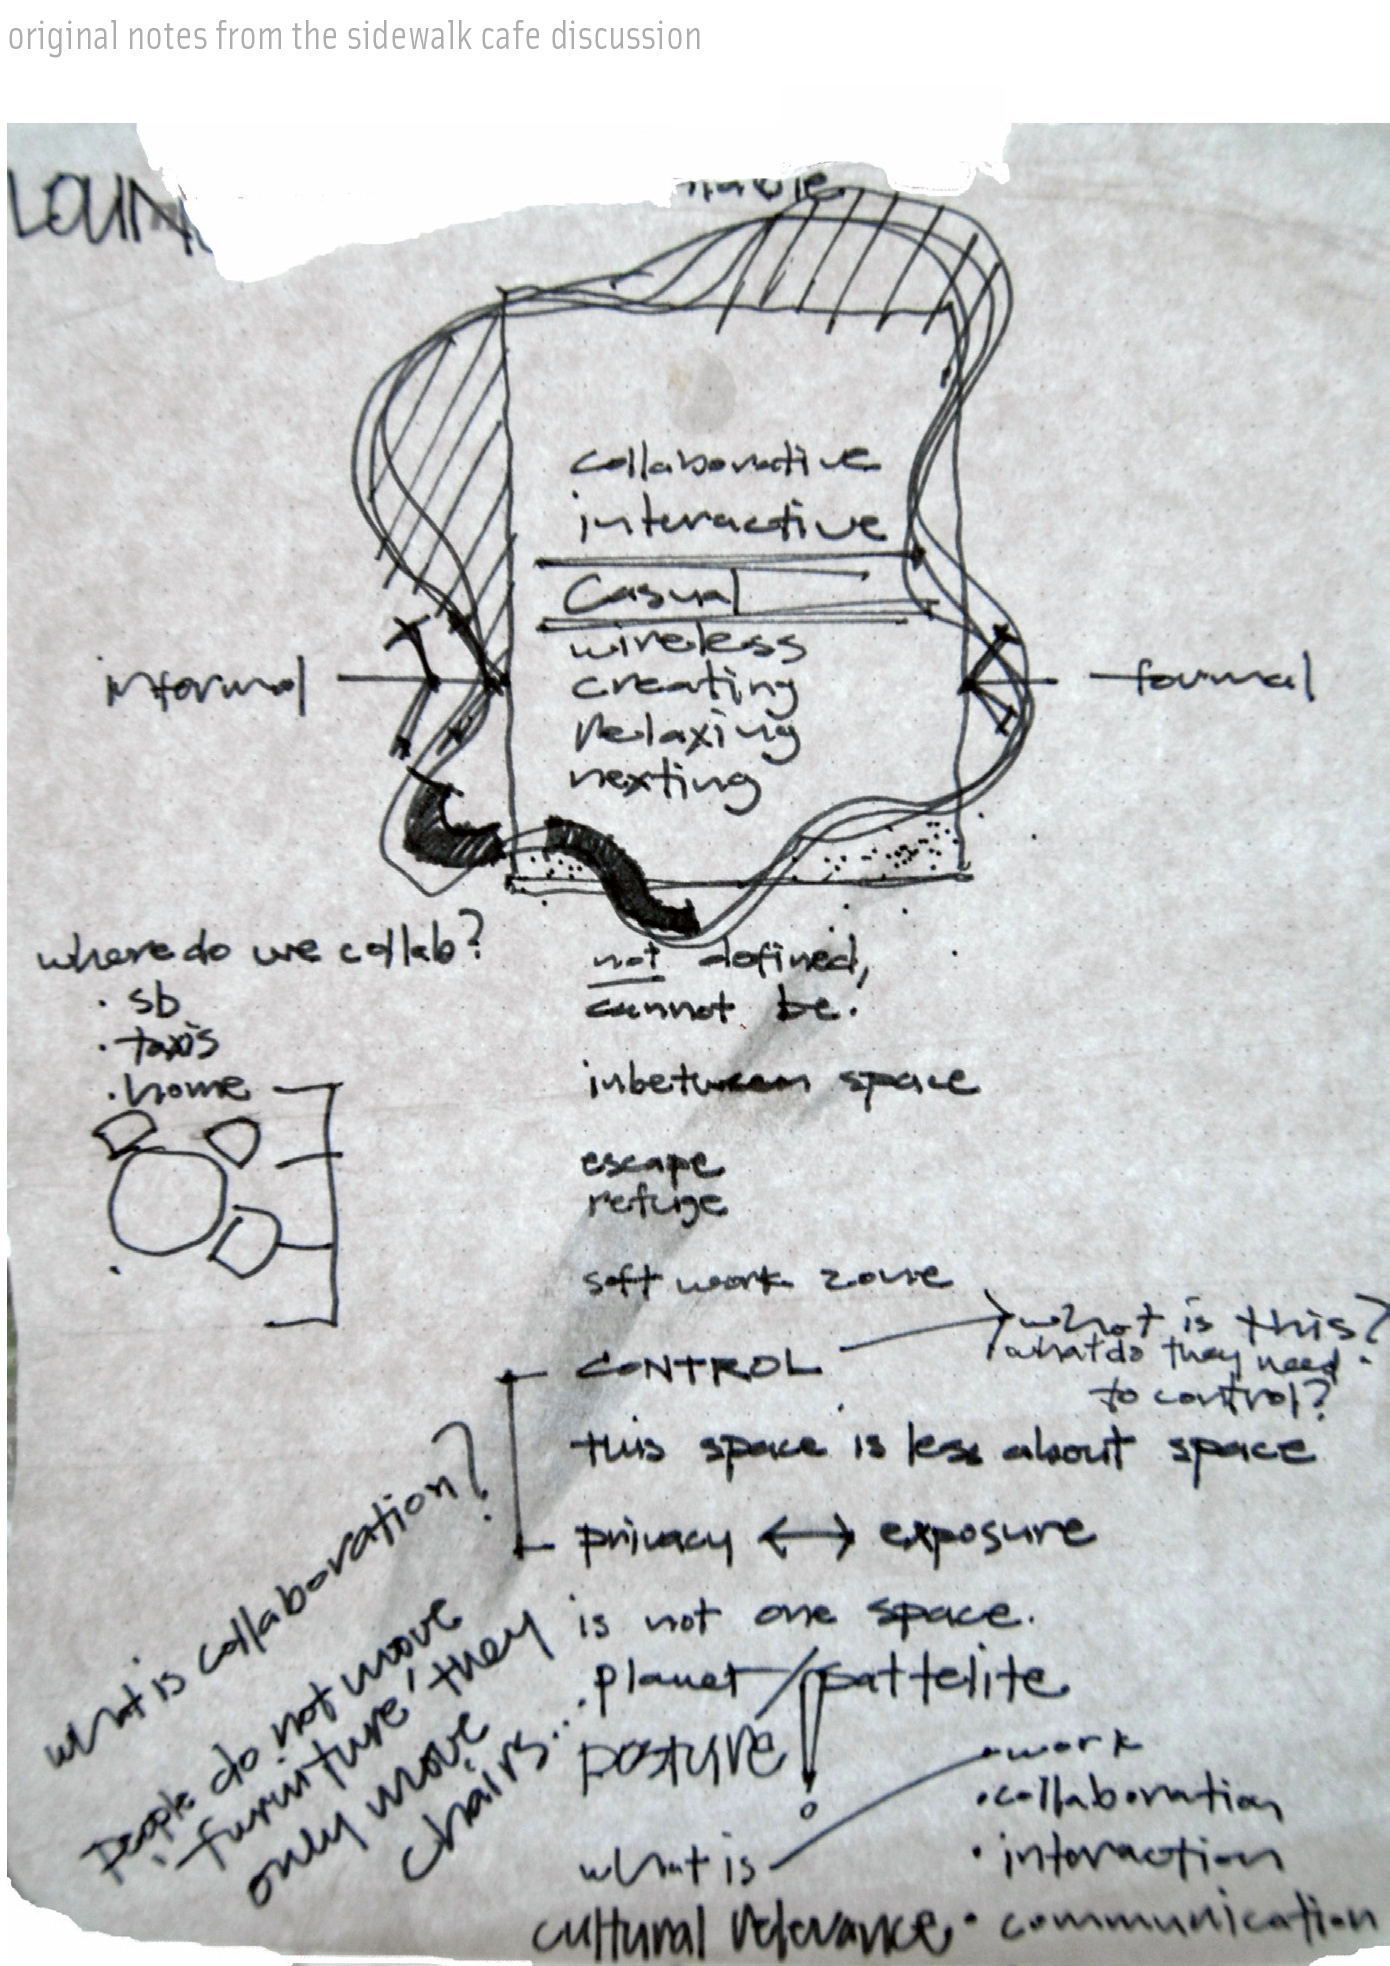 original notes from the sidewalk cafe discussion
collaborative
interactive
Casual
wireless
creating
relaxing
nexting
informal
formal
where do we collab?
· sb
· taxis
· home
not defined,
cannot be.
inbetween space
escape
refuge
soft work zone
CONTROL
what is this?
what do they need
to control?
this space is less about space
privacy ↔ exposure
is not one space.
· planet / sattelite
posture!
what is
· work
· collaboration
· interaction
· communication
cultural relevance
what is collaboration?
people do not move
'furniture' they
only move
chairs...